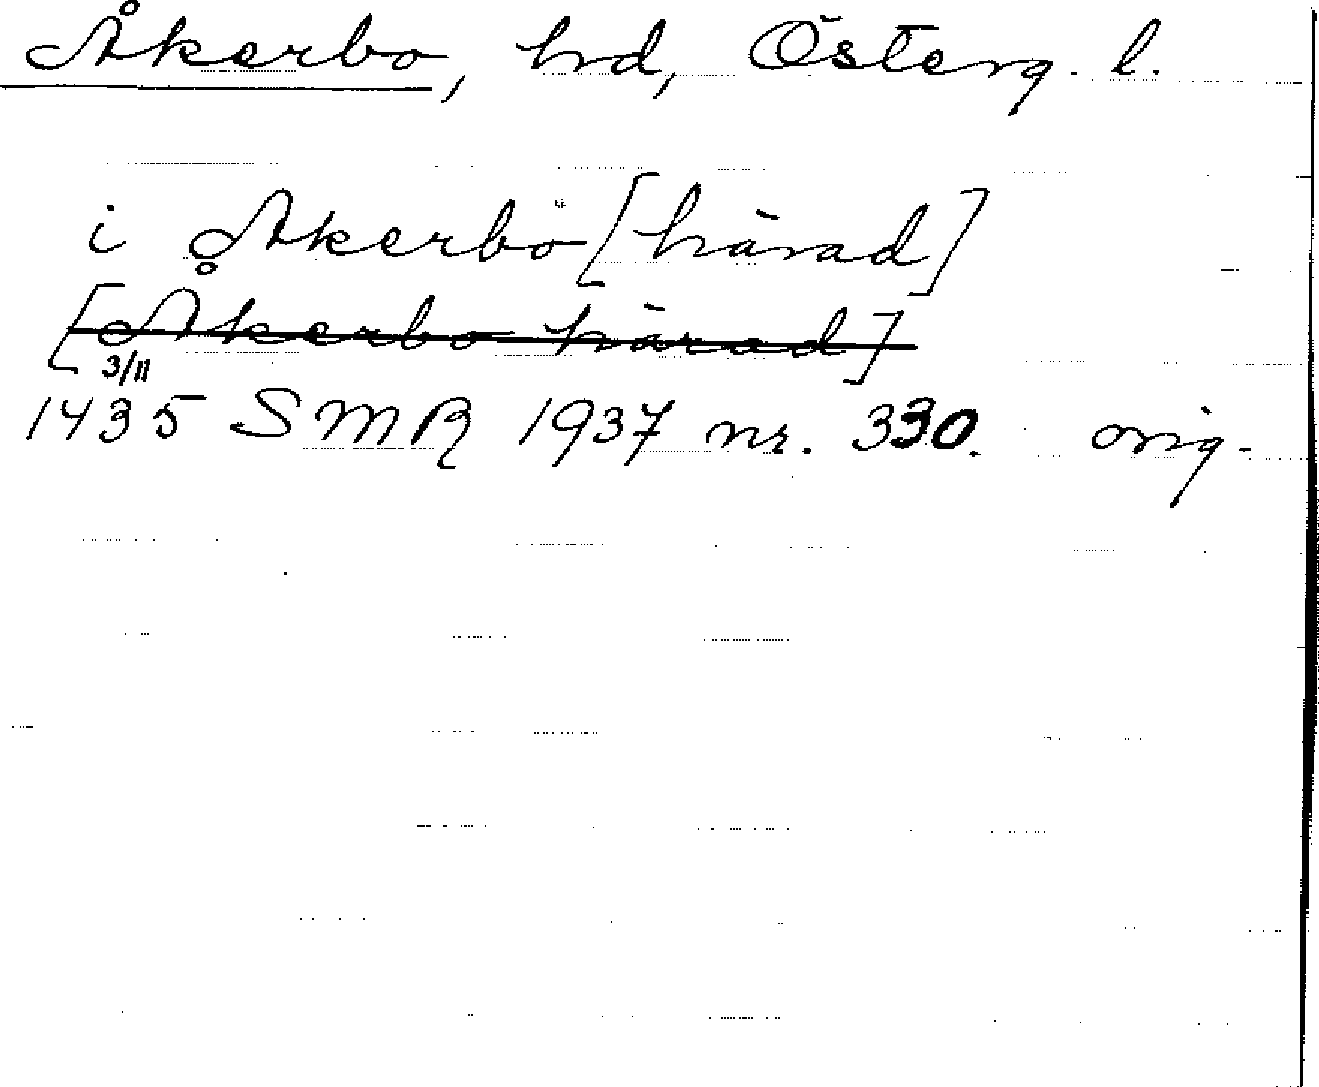 Åkerbo, hd, Österg. l.
i Åkerbo [härad]
[Åkerbo härad]
3/11
1435 SMR 1937 nr. 330. orig.